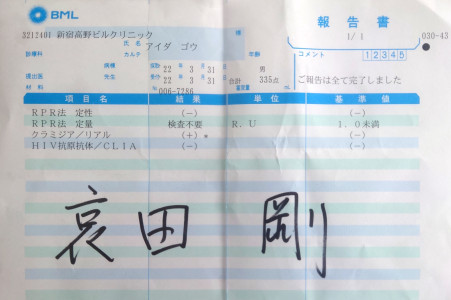 BML
報告書
3212401 新宿高野ビルクリニック 様 1/1 030-43
氏名 アイダ ゴウ
診療科 カルテ 年齢 コメント 12345
病棟 採取 22年 3月 31日 男
提出医 先生 受付 22年 3月 31日 合計 335点 ご報告は全て完了しました
材料 006-7286
項目名 結果 単位 基準値
RPR法 定性 (-) (-)
RPR法 定量 検査不要 R.U 1.0未満
クラミジア/リアル (+)* (-)
HIV抗原抗体/CLIA (-) (-)
哀田 剛